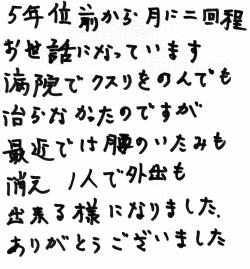 5年位前から月に二回程
お世話になっています
病院でクスリをのんでも
治らなかったのですが
最近では腰のいたみも
消え 1人で外出も
出来る様になりました.
ありがとうございました